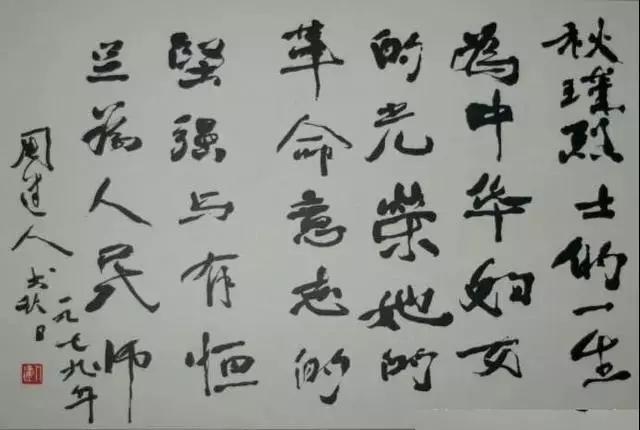 秋瑾烈士的一生
為中华妇女
的光榮她的
革命意志的
堅强与有恒
足為人民师
一九七九年
周達人书秋日